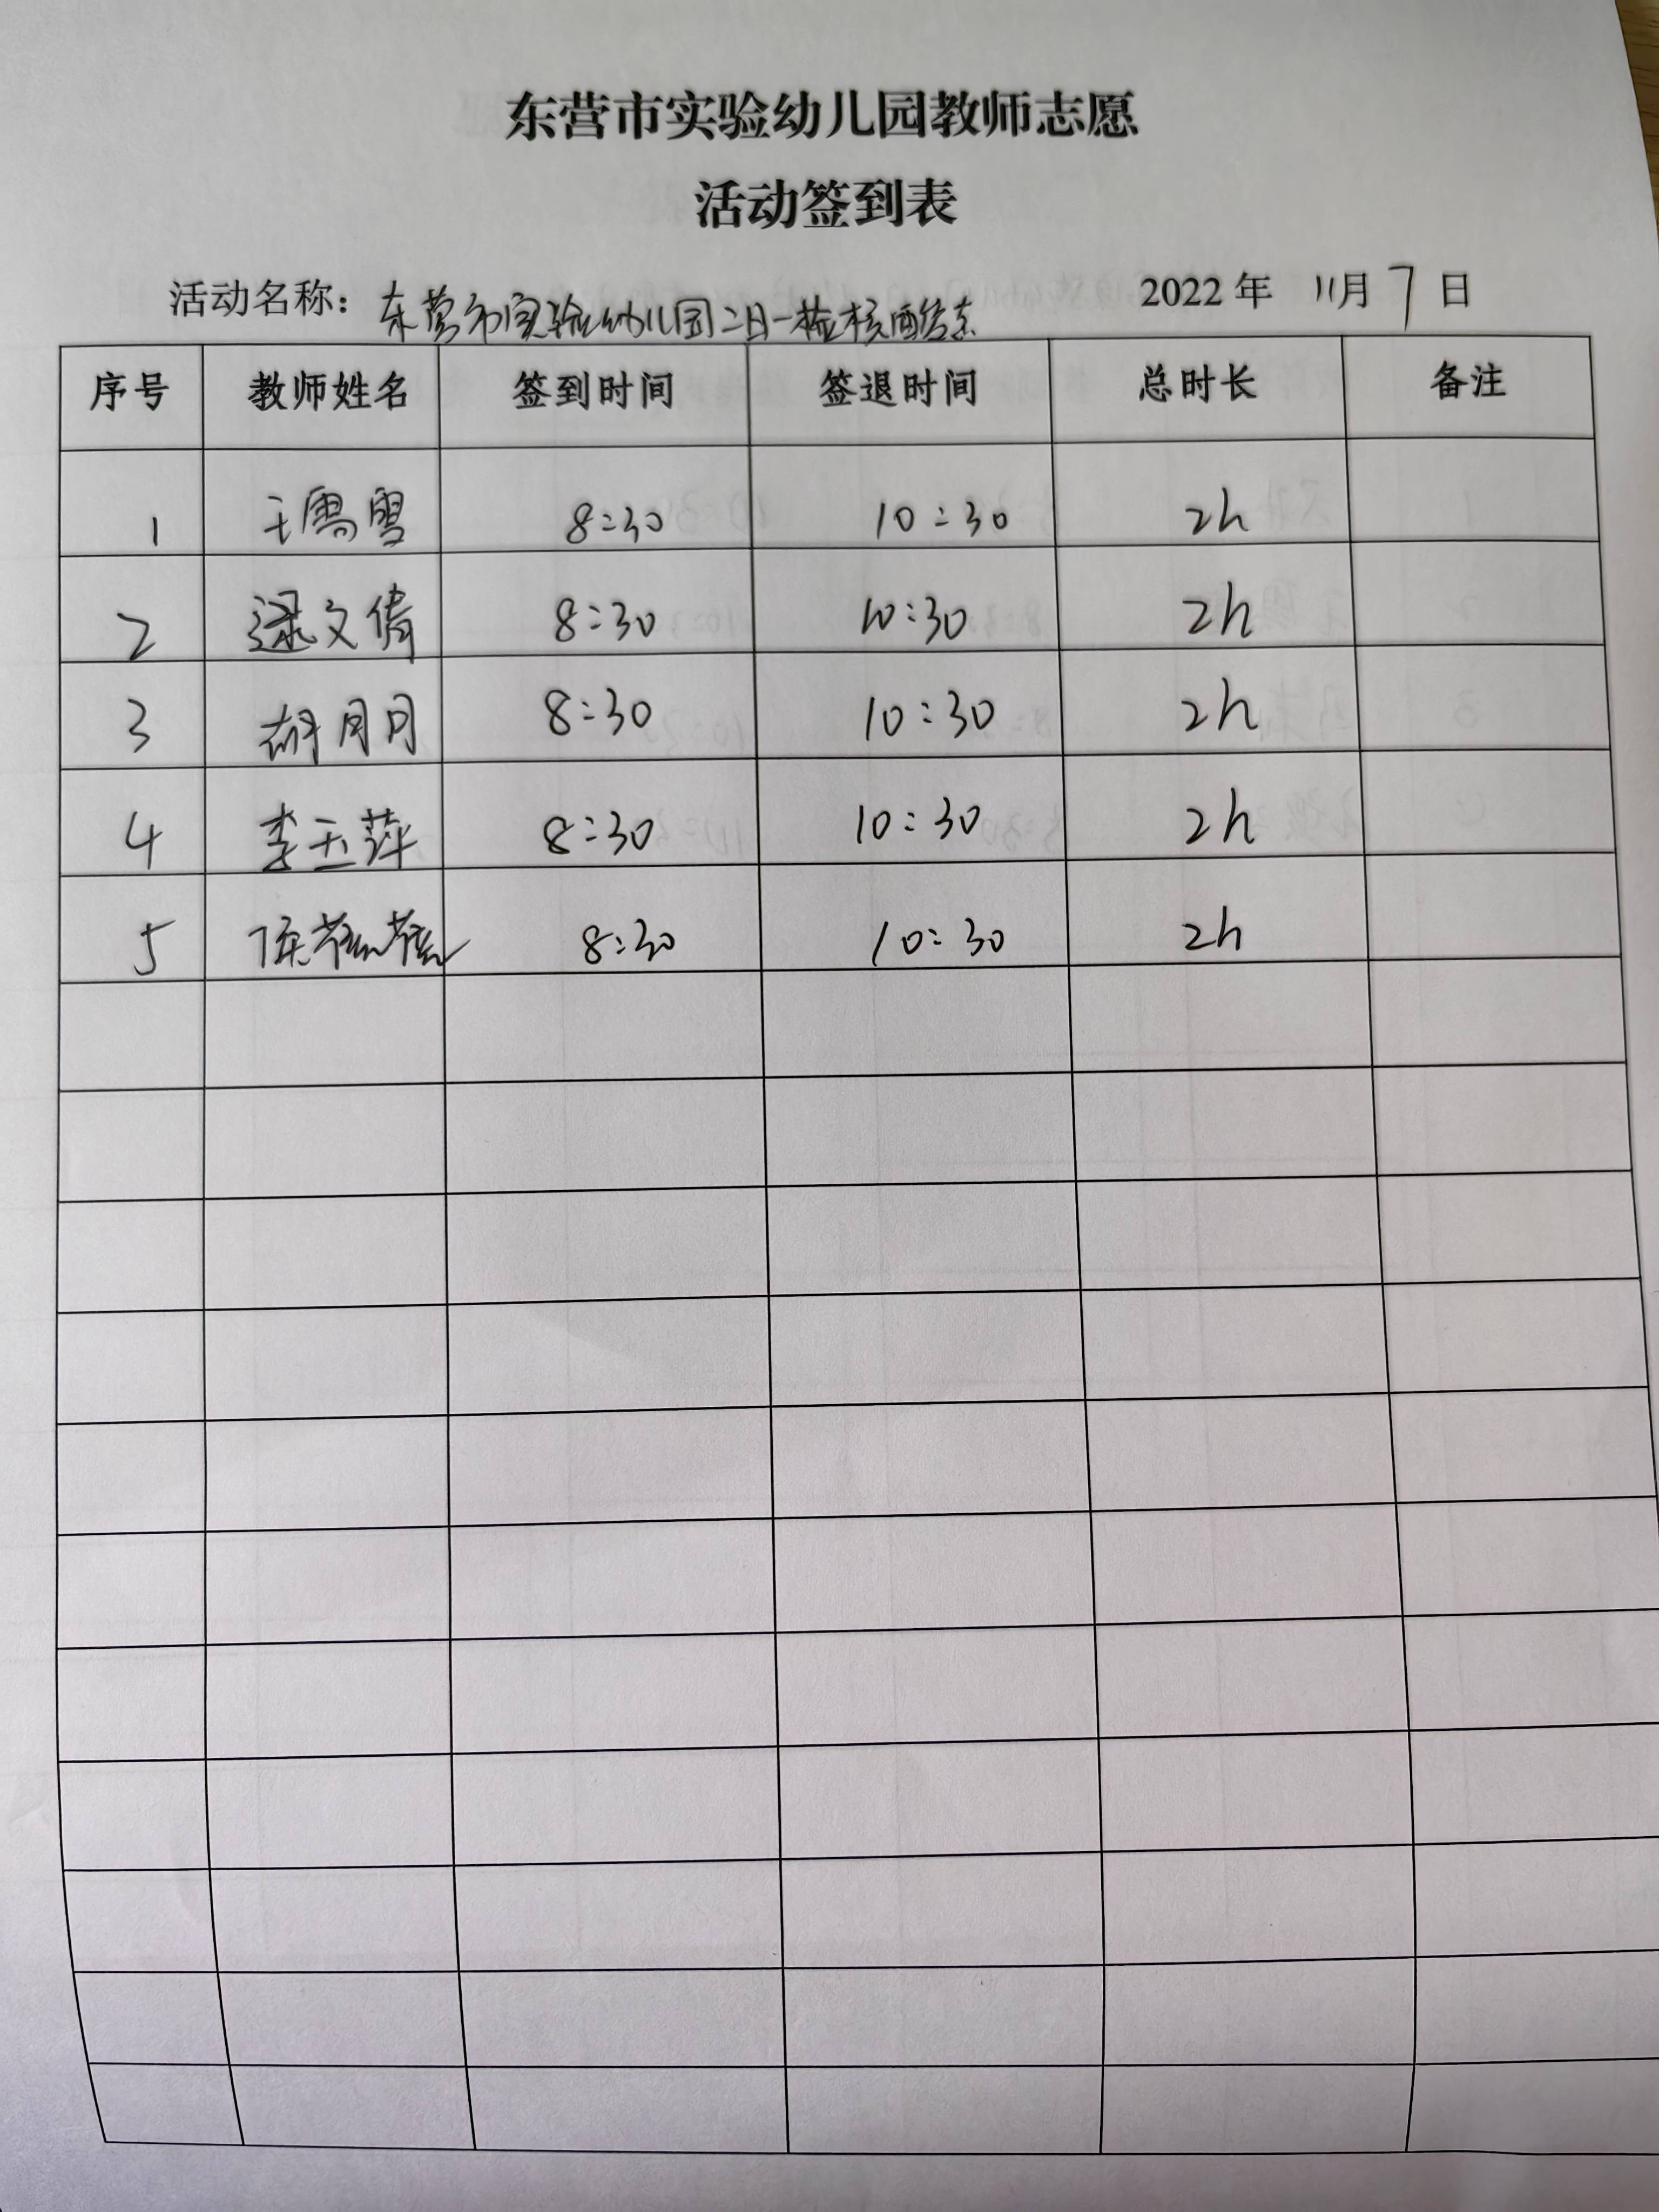 东营市实验幼儿园教师志愿
活动签到表
活动名称：东营市实验幼儿园二日一检核酸 2022 年 11月 7 日
序号 教师姓名 签到时间 签退时间 总时长 备注
1 王 雪 8:30 10:30 2h
2 逯文倩 8:30 10:30 2h
3 胡月月 8:30 10:30 2h
4 李玉萍 8:30 10:30 2h
5 陈 8:30 10:30 2h